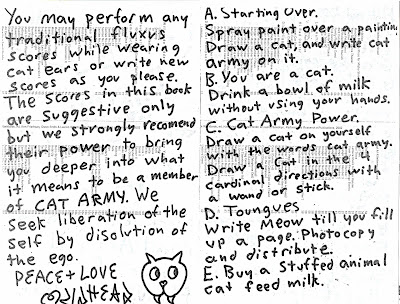 You may perform any
traditional fluxus
scores while wearing
cat ears or write new
scores as you please.
The scores in this book
are suggestive only
but we strongly recomend
their power to bring
you deeper into what
it means to be a member
of CAT ARMY. We
seek liberation of the
self by disolution of
the ego.
PEACE + LOVE
A. Starting Over.
Spray paint over a painting
Draw a cat, and write cat
army on it.
B. You are a cat.
Drink a bowl of milk
without using your hands.
C. Cat Army Power.
Draw a cat on yourself
with the words cat army.
Draw a Cat in the 4
cardinal directions with
a wand or stick.
D. Toungues
Write Meow till you fill
up a page. Photocopy
and distribute.
E. Buy a stuffed animal
cat feed milk.